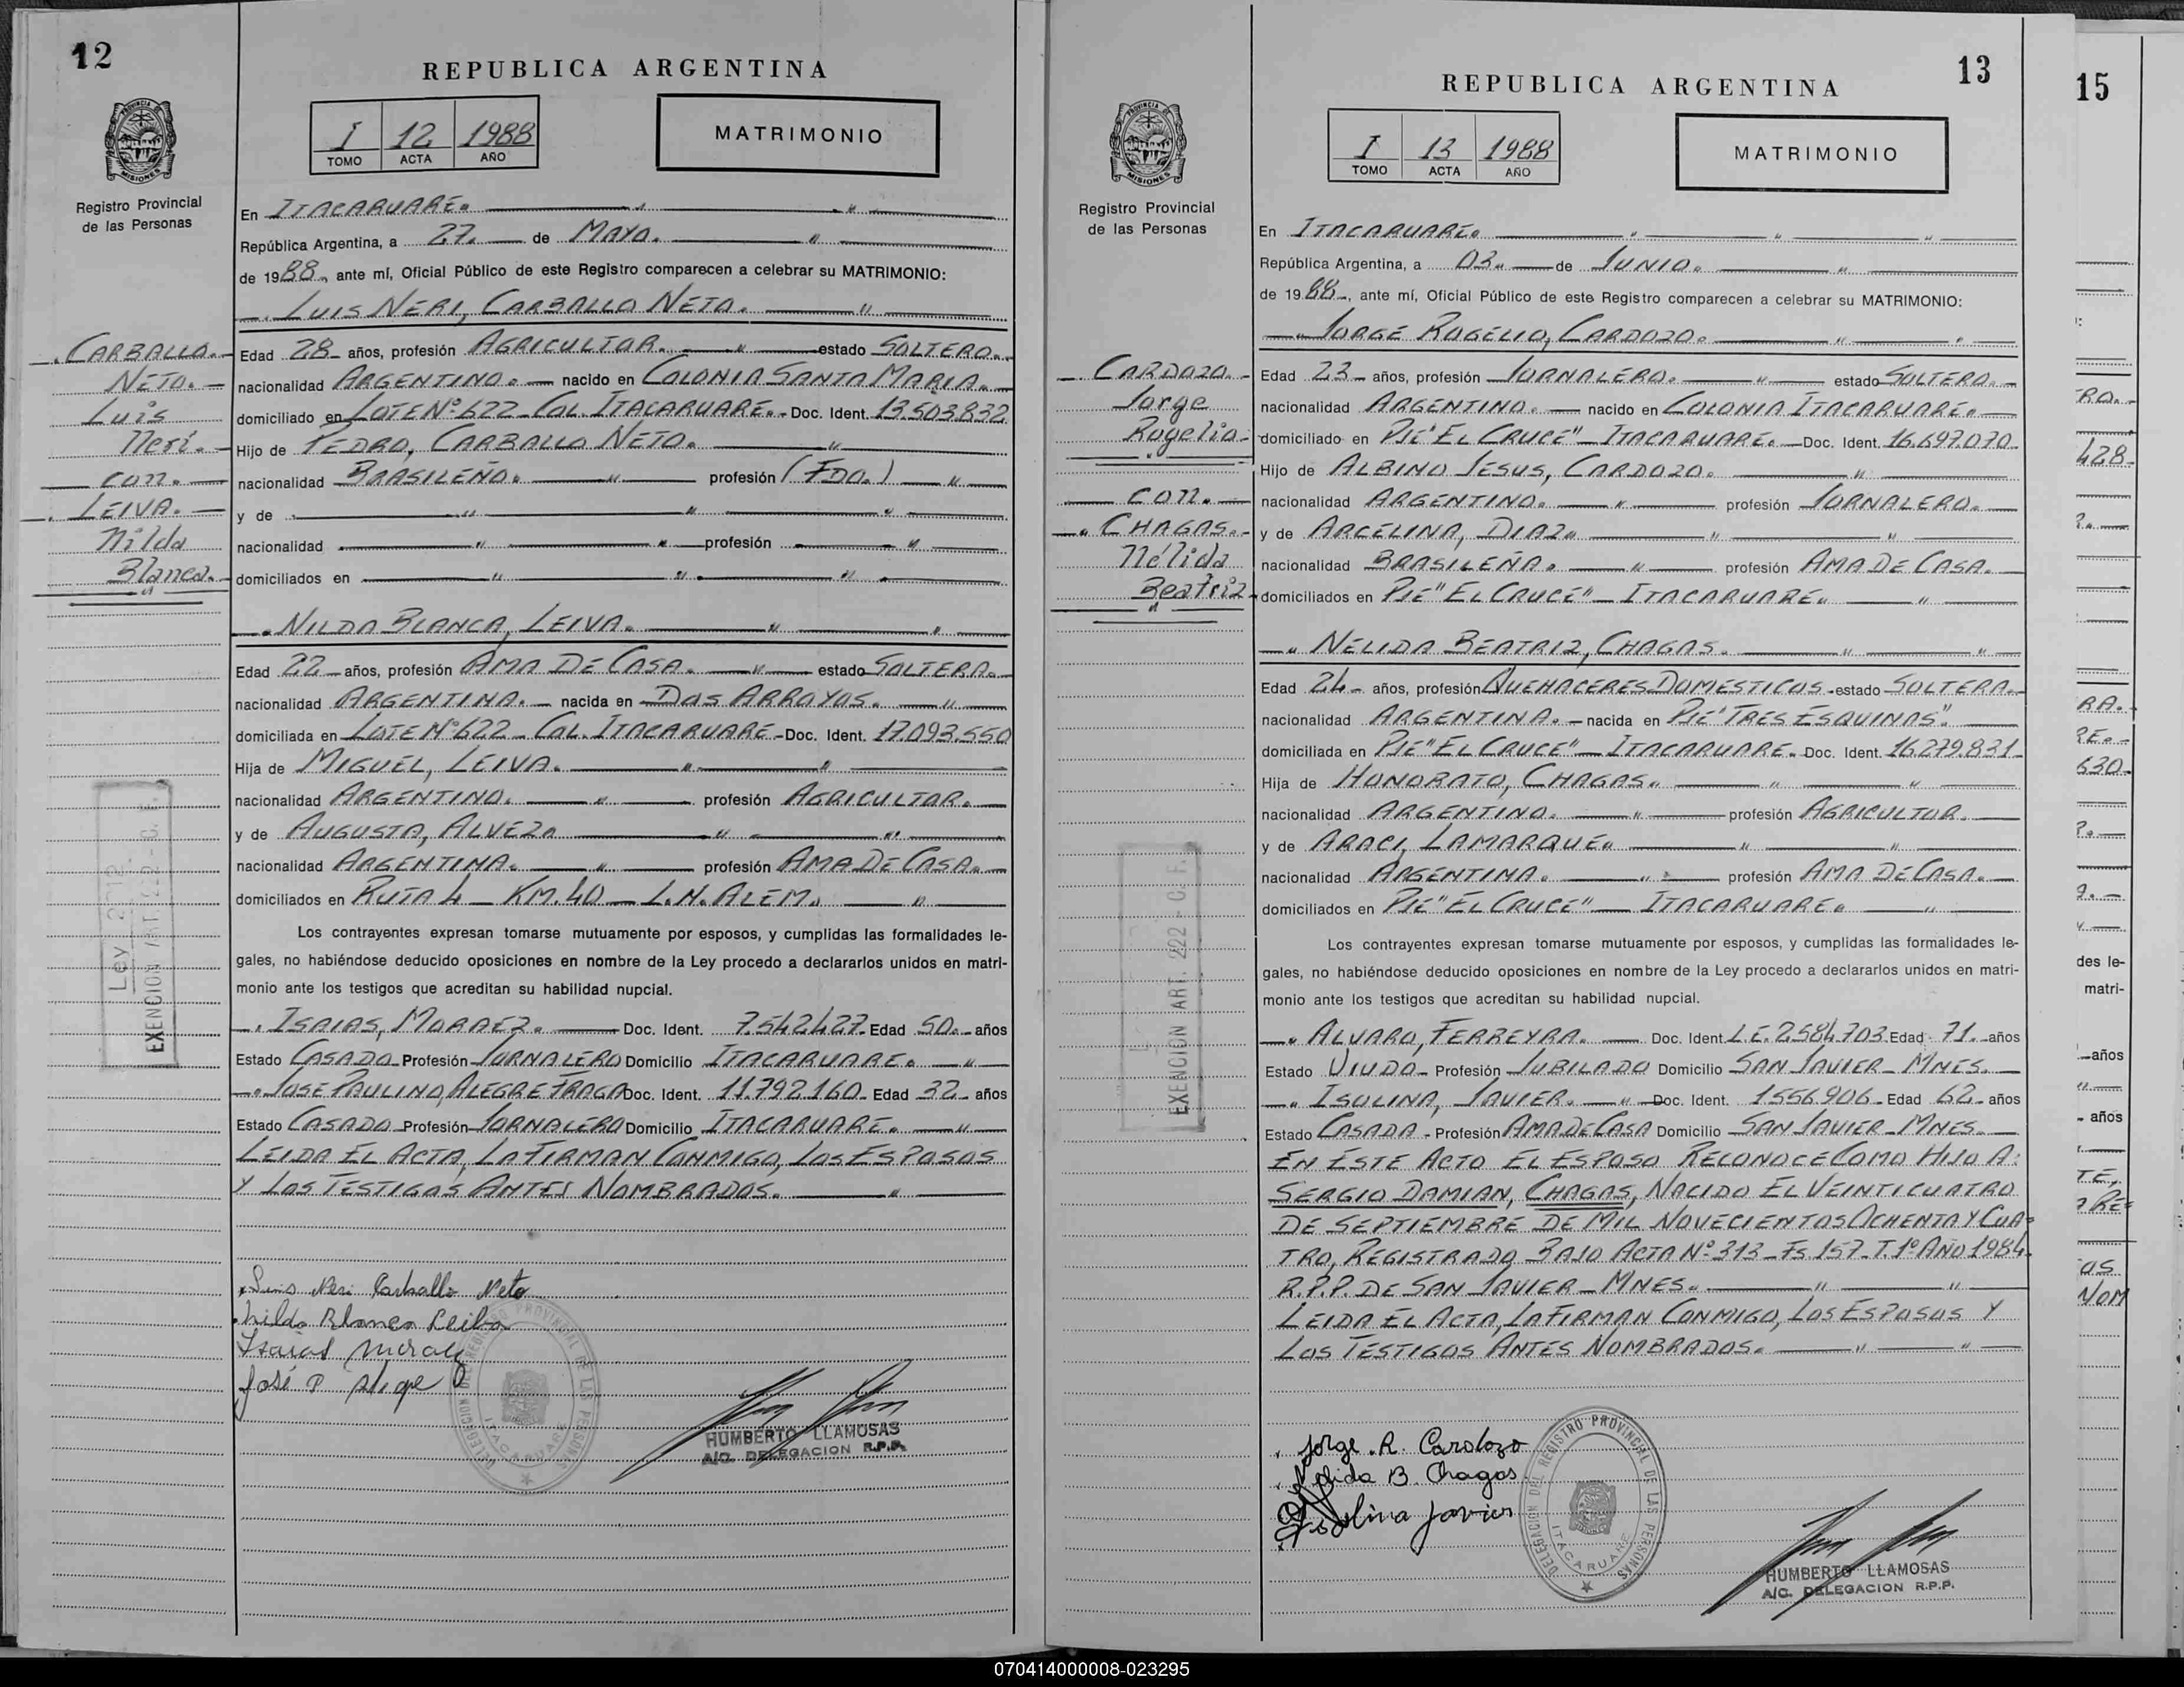 12
REPUBLICA ARGENTINA
PROVINCIA DE MISIONES
Registro Provincial
de las Personas
I 12 1988
TOMO ACTA AÑO
MATRIMONIO
En ITACARUARE.
República Argentina, a 27. de MAYO.
de 1988., ante mí, Oficial Público de este Registro comparecen a celebrar su MATRIMONIO:
LUIS NERI, CARBALLO NETO.
CARBALLO.
NETO.
Luis
Neri.
con.
LEIVA.
Nilda
Blanca.
Edad 28 años, profesión AGRICULTOR. estado SOLTERO.
nacionalidad ARGENTINO. nacido en COLONIA SANTA MARIA.
domiciliado en LOTE Nº 622 - COL. ITACARUARE. - Doc. Ident. 13.503.832
Hijo de PEDRO, CARBALLO NETO.
nacionalidad BRASILEÑO. profesión (FDO.)
y de
nacionalidad profesión
domiciliados en
NILDA BLANCA, LEIVA.
Edad 22 años, profesión AMA DE CASA. estado SOLTERA.
nacionalidad ARGENTINA. nacida en DOS ARROYOS.
domiciliada en LOTE Nº 622 - COL. ITACARUARE - Doc. Ident. 17.093.550
Hija de MIGUEL, LEIVA.
nacionalidad ARGENTINO. profesión AGRICULTOR.
y de AUGUSTA, ALVEZ.
nacionalidad ARGENTINA. profesión AMA DE CASA.
domiciliados en RUTA 4 - KM. 40 - L.N. ALEM.
Los contrayentes expresan tomarse mutuamente por esposos, y cumplidas las formalidades le-
gales, no habiéndose deducido oposiciones en nombre de la Ley procedo a declararlos unidos en matri-
monio ante los testigos que acreditan su habilidad nupcial.
ISAIAS, MORAEZ. Doc. Ident. 7.542.427. Edad 50. años
Estado CASADO Profesión JORNALERO Domicilio ITACARUARE.
JOSE PAULINO, ALEGRE FRAGA Doc. Ident. 11.792.160 Edad 32 años
Estado CASADO Profesión JORNALERO Domicilio ITACARUARE.
LEIDA EL ACTA, LA FIRMAN CONMIGO, LOS ESPOSOS
Y LOS TESTIGOS ANTES NOMBRADOS.
Luis Neri Carballo Neto
Nilda Blanca Leiba
Isaias
José P
DELEGACION DEL REGISTRO PROVINCIAL DE LAS PERSONAS
ITACARUARE
HUMBERTO LLAMOSAS
A/C. DELEGACION R.P.P.
Ley
EXENCION ART. 222
13
REPUBLICA ARGENTINA
PROVINCIA DE MISIONES
Registro Provincial
de las Personas
I 13 1988
TOMO ACTA AÑO
MATRIMONIO
En ITACARUARE.
República Argentina, a 03. de JUNIO.
de 1988., ante mí, Oficial Público de este Registro comparecen a celebrar su MATRIMONIO:
JORGE ROGELIO, CARDOZO.
CARDOZO.
Jorge
Rogelio.
con.
CHAGAS.
Nélida
Beatriz
Edad 23 años, profesión JORNALERO. estado SOLTERO.
nacionalidad ARGENTINO. nacido en COLONIA ITACARUARE.
domiciliado en PJE "EL CRUCE" - ITACARUARE. Doc. Ident. 16.697.070
Hijo de ALBINO JESUS, CARDOZO.
nacionalidad ARGENTINO. profesión JORNALERO.
y de ARCELINA, DIAZ.
nacionalidad BRASILEÑA. profesión AMA DE CASA.
domiciliados en PJE "EL CRUCE" - ITACARUARE.
NELIDA BEATRIZ, CHAGAS.
Edad 24 años, profesión QUEHACERES DOMESTICOS. estado SOLTERA.
nacionalidad ARGENTINA. nacida en PJE "TRES ESQUINAS".
domiciliada en PJE "EL CRUCE" - ITACARUARE. Doc. Ident. 16.279.831
Hija de HONORATO, CHAGAS.
nacionalidad ARGENTINO. profesión AGRICULTOR.
y de ARACI, LAMARQUE.
nacionalidad ARGENTINA. profesión AMA DE CASA.
domiciliados en PJE "EL CRUCE" - ITACARUARE.
Los contrayentes expresan tomarse mutuamente por esposos, y cumplidas las formalidades le-
gales, no habiéndose deducido oposiciones en nombre de la Ley procedo a declararlos unidos en matri-
monio ante los testigos que acreditan su habilidad nupcial.
ALVARO, FERREYRA. Doc. Ident. L.E. 2.584.703 Edad 71. años
Estado VIUDO - Profesión JUBILADO Domicilio SAN JAVIER - MNES.
ISOLINA, JAVIER. Doc. Ident. 1.556.906 - Edad 62 años
Estado CASADA - Profesión AMA DE CASA Domicilio SAN JAVIER - MNES.
EN ESTE ACTO EL ESPOSO RECONOCE COMO HIJO A:
SERGIO DAMIAN, CHAGAS, NACIDO EL VEINTICUATRO
DE SEPTIEMBRE DE MIL NOVECIENTOS OCHENTA Y CUA-
TRO, REGISTRADO BAJO ACTA Nº 313 - FS. 157 - T. 1º AÑO 1984.
R.P.P. DE SAN JAVIER - MNES.
LEIDA EL ACTA, LA FIRMAN CONMIGO, LOS ESPOSOS Y
LOS TESTIGOS ANTES NOMBRADOS.
Jorge R. Cardozo
Nelida B. Chagas
Isolina Javier
DELEGACION DEL REGISTRO PROVINCIAL DE LAS PERSONAS
ITACARUARE
HUMBERTO LLAMOSAS
A/C. DELEGACION R.P.P.
EXENCION ART. 222 - C. F.
15
RO.
428
RA.
RE.
630
des le-
matri-
años
años
TE,
RE
OS
NOM
070414000008-023295